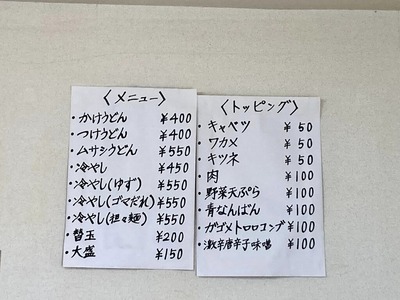 〈メニュー〉
・かけうどん ¥400
・つけうどん ¥400
・ムサシうどん ¥550
・冷やし ¥450
・冷やし(ゆず) ¥550
・冷やし(ゴマだれ) ¥550
・冷やし(担々麺) ¥550
・替玉 ¥200
・大盛 ¥150
〈トッピング〉
・キャベツ ¥50
・ワカメ ¥50
・キツネ ¥50
・肉 ¥100
・野菜天ぷら ¥100
・青なんばん ¥100
・ガゴメトロロコンブ ¥100
・激辛唐辛子味噌 ¥100